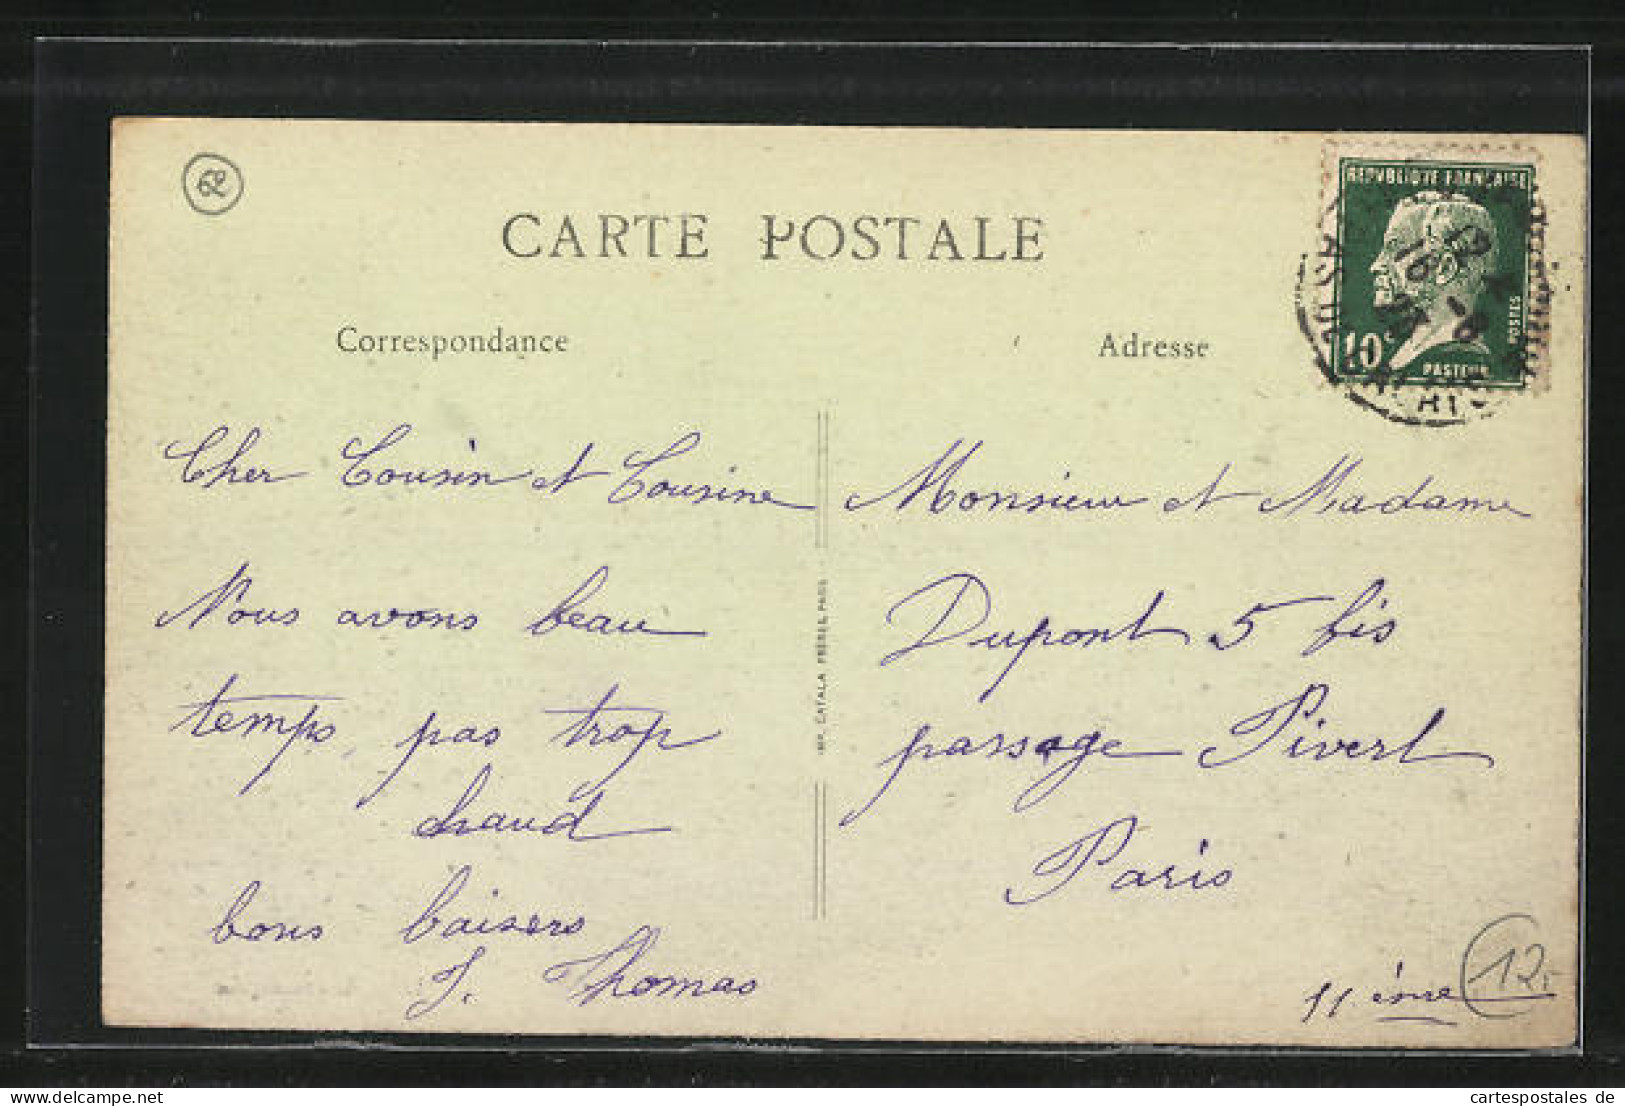 62
CARTE POSTALE
Correspondance
Adresse
REPVBLIQVE FRANÇAISE
POSTES
10c
PASTEUR
12
16 -8
PAS DE CALAIS
Cher Cousin et Cousine
Nous avons beau
temps, pas trop
chaud
bons baisers
J. Thomas
IMP. CATALA FRÈRES, PARIS
Monsieur et Madame
Dupont 5 bis
passage Pivert
Paris
11 ème
12.-
cartespostales de